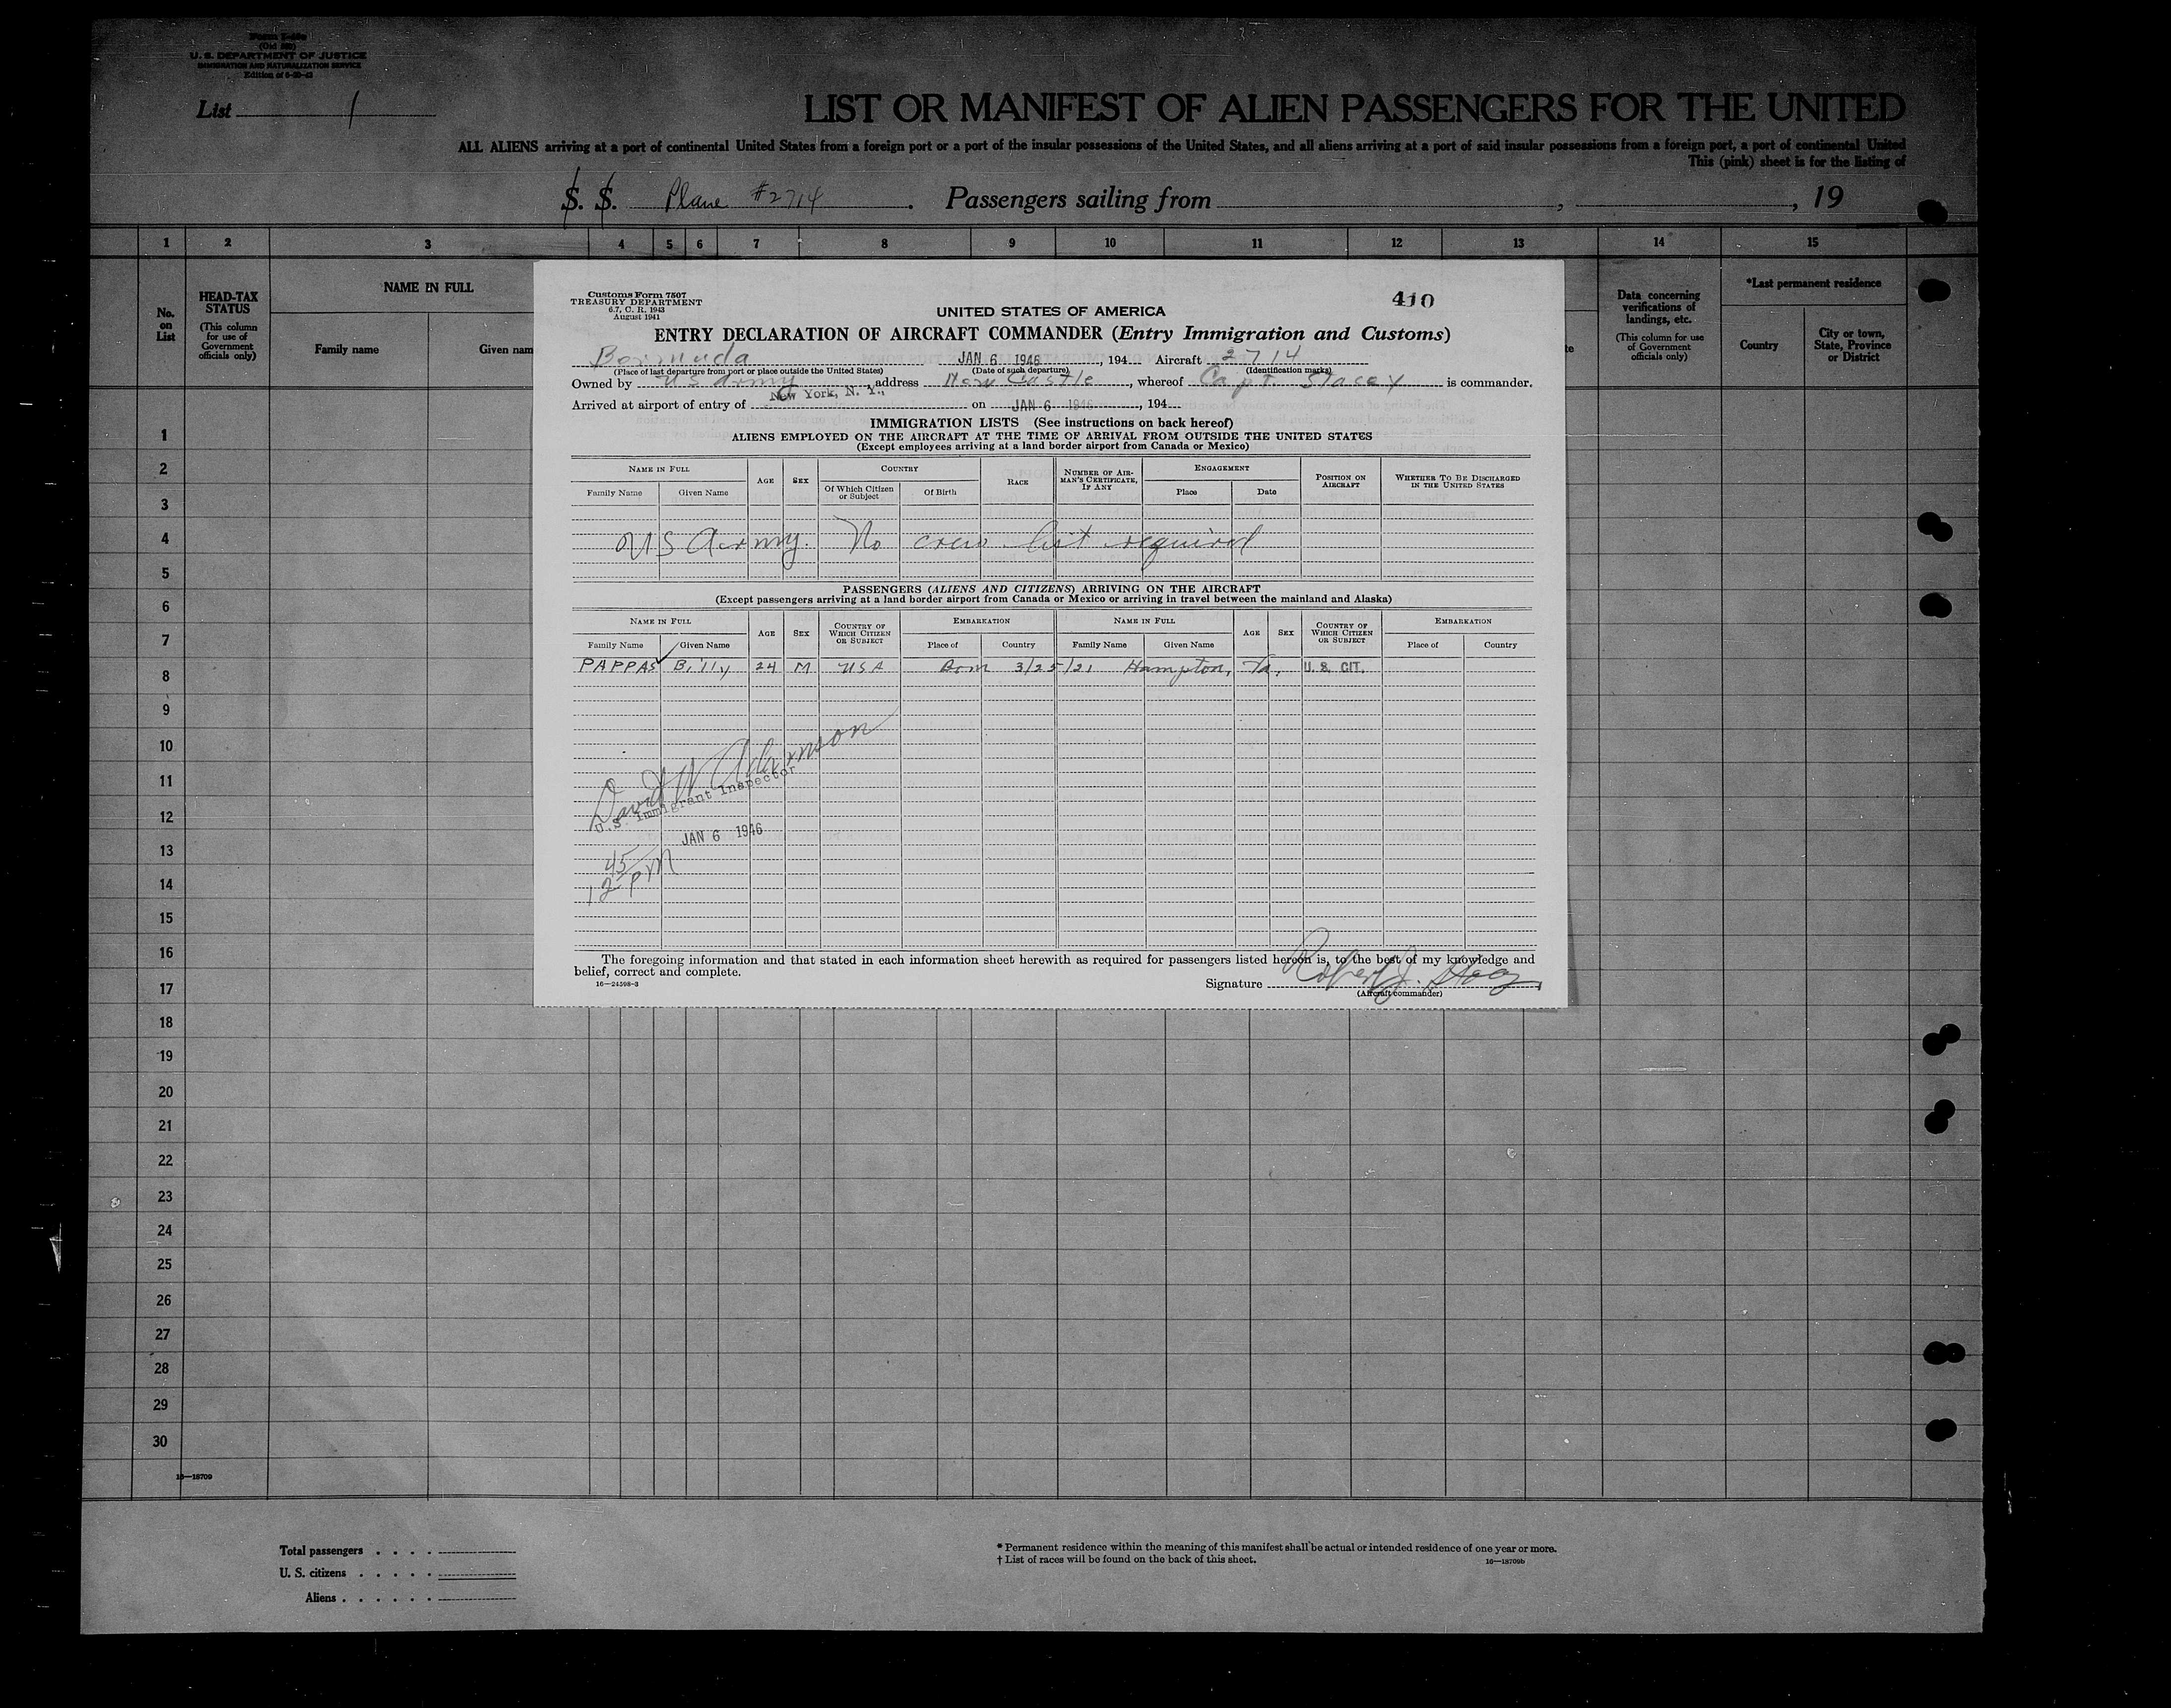 Form I-466
(Old 500)
U. S. DEPARTMENT OF JUSTICE
IMMIGRATION AND NATURALIZATION SERVICE
List 1
LIST OR MANIFEST OF ALIEN PASSENGERS FOR THE UNITED
ALL ALIENS arriving at a port of continental United States from a foreign port or a port of the insular possessions of the United States, and all aliens arriving at a port of said insular possessions from a foreign port, a port of continental United
This (pink) sheet is for the listing of
S. S. Plane #2714 . Passengers sailing from , , 19
1 2 3 4 5 6 7 8 9 10 11 12 13 14 15
No. on List
HEAD-TAX STATUS
(This column for use of Government officials only)
NAME IN FULL
Family name Given nam
te
Data concerning verifications of landings, etc.
(This column for use of Government officials only)
*Last permanent residence
Country City or town, State, Province or District
Customs Form 7507
TREASURY DEPARTMENT
6.7, C. R. 1943
August 1941
410
UNITED STATES OF AMERICA
ENTRY DECLARATION OF AIRCRAFT COMMANDER (Entry Immigration and Customs)
Bermuda JAN 6 1946, 194 Aircraft 2714
(Place of last departure from port or place outside the United States) (Date of such departure) (Identification marks)
Owned by US Army, address New Castle, whereof Capt. Stacey is commander.
Arrived at airport of entry of New York, N. Y., on JAN 6 1946, 194
IMMIGRATION LISTS (See instructions on back hereof)
ALIENS EMPLOYED ON THE AIRCRAFT AT THE TIME OF ARRIVAL FROM OUTSIDE THE UNITED STATES
(Except employees arriving at a land border airport from Canada or Mexico)
NAME IN FULL AGE SEX COUNTRY RACE NUMBER OF AIRMAN'S CERTIFICATE, IF ANY ENGAGEMENT POSITION ON AIRCRAFT WHETHER TO BE DISCHARGED IN THE UNITED STATES
Family Name Given Name Of Which Citizen or Subject Of Birth Place Date
US Army. No crew list required
PASSENGERS (ALIENS AND CITIZENS) ARRIVING ON THE AIRCRAFT
(Except passengers arriving at a land border airport from Canada or Mexico or arriving in travel between the mainland and Alaska)
NAME IN FULL AGE SEX COUNTRY OF WHICH CITIZEN OR SUBJECT EMBARKATION NAME IN FULL AGE SEX COUNTRY OF WHICH CITIZEN OR SUBJECT EMBARKATION
Family Name Given Name Place of Country Family Name Given Name Place of Country
PAPPAS Billy 24 M USA Born 3/25/21 Hampton, Va. U. S. CIT.
David W Adamson
U.S. Immigrant Inspector
JAN 6 1946
12 45 PM
The foregoing information and that stated in each information sheet herewith as required for passengers listed hereon is, to the best of my knowledge and
belief, correct and complete.
16—24598-3
Signature Robert J. Stacey
(Aircraft commander)
1
2
3
4
5
6
7
8
9
10
11
12
13
14
15
16
17
18
19
20
21
22
23
24
25
26
27
28
29
30
16—18709
Total passengers . . . .
U. S. citizens . . . . .
Aliens . . . . . .
* Permanent residence within the meaning of this manifest shall be actual or intended residence of one year or more.
† List of races will be found on the back of this sheet.
16—18709b